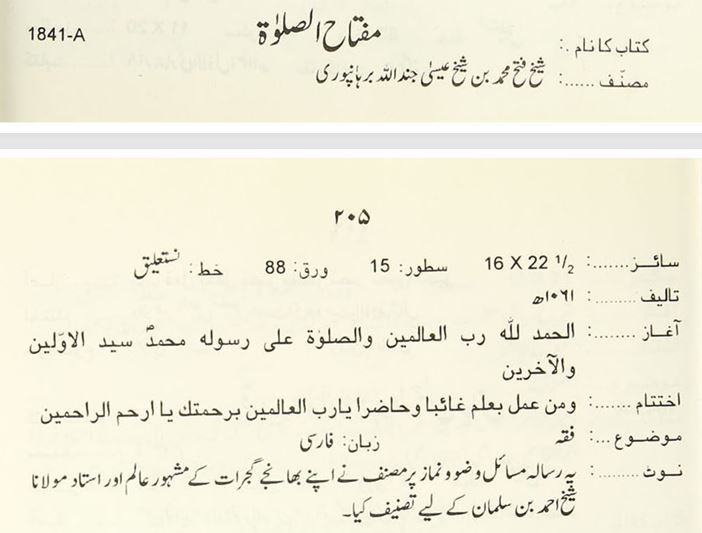 کتاب کا نام .: مفتاح الصلوٰۃ 1841-A
مصنّف ......: شیخ فتح محمد بن شیخ عیسیٰ جند اللہ برہانپوری
۲۰۵
سائـز.......: 16 X 22 1/2 سطور: 15 ورق: 88 خط: نستعلیق
تالیف .........: ۱۰۶۱ھ
آغـاز .........: الحمد للّٰہ رب العالمین والصلوٰۃ علی رسولہ محمدؐ سید الاوّلین
والآخرین
اختتام .......: ومن عمل بعلم غائبا وحاضرا یارب العالمین برحمتك یا ارحم الراحمین
موضـوع ...: فقہ زبان: فارسی
نـوٹ .........: یہ رسالہ مسائل وضو و نماز پر مصنف نے اپنے بھانجے گجرات کے مشہور عالم اور استاد مولانا
شیخ احمد بن سلمان کے لیے تصنیف کیا۔